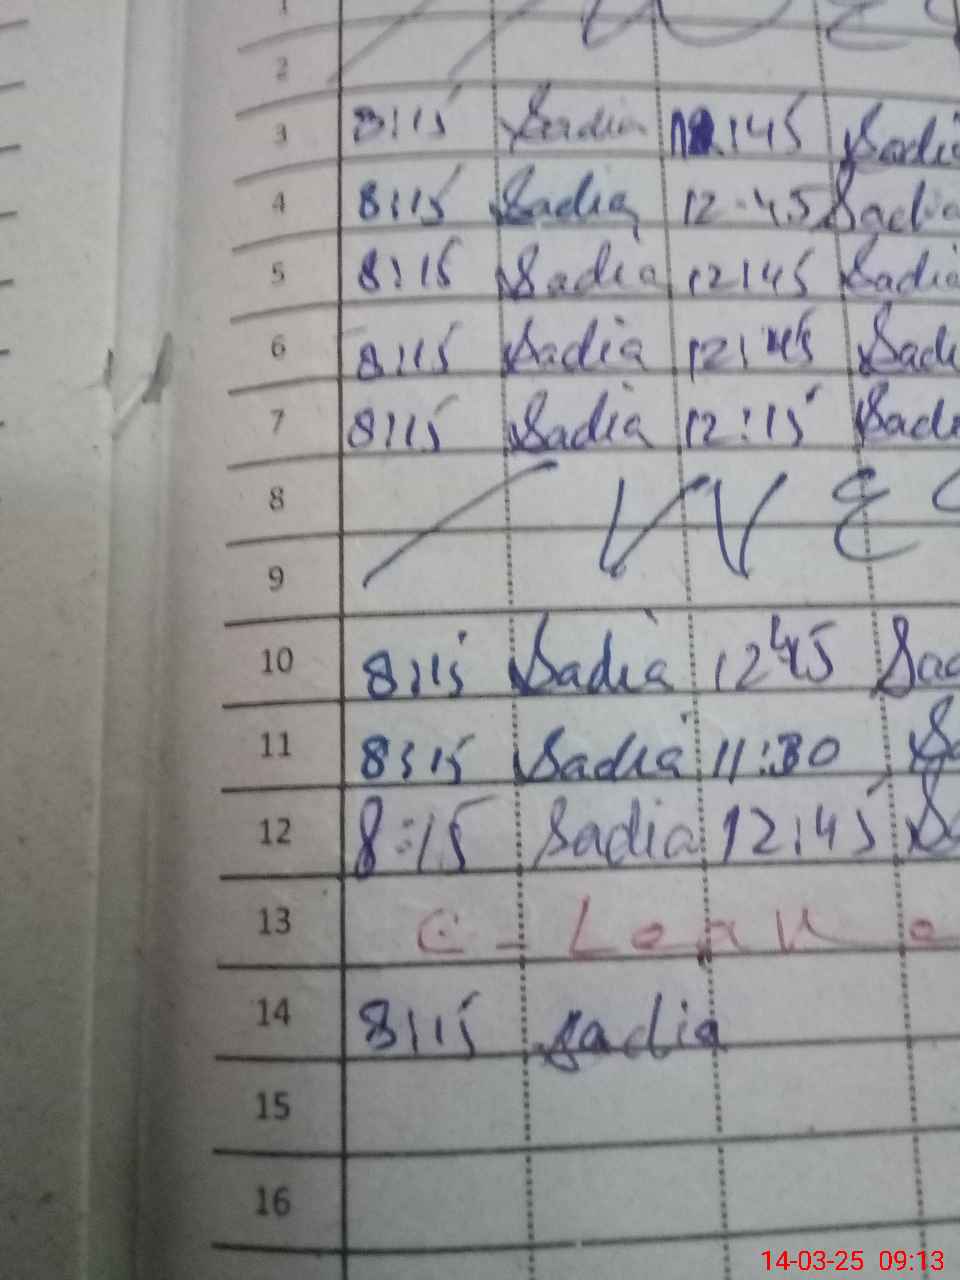 1
2
3 8:15 Sadia 12:45 Sadia
4 8:15 Sadia 12:45 Sadia
5 8:15 Sadia 12:45 Sadia
6 8:15 Sadia 12:45 Sadi
7 8:15 Sadia 12:15 Sadi
8
9
10 8:15 Sadia 12:45 Sad
11 8:15 Sadia 11:30 Sa
12 8:15 Sadia 12:45 Sa
13 C-Leave
14 8:15 Sadia
15
16
14-03-25 09:13